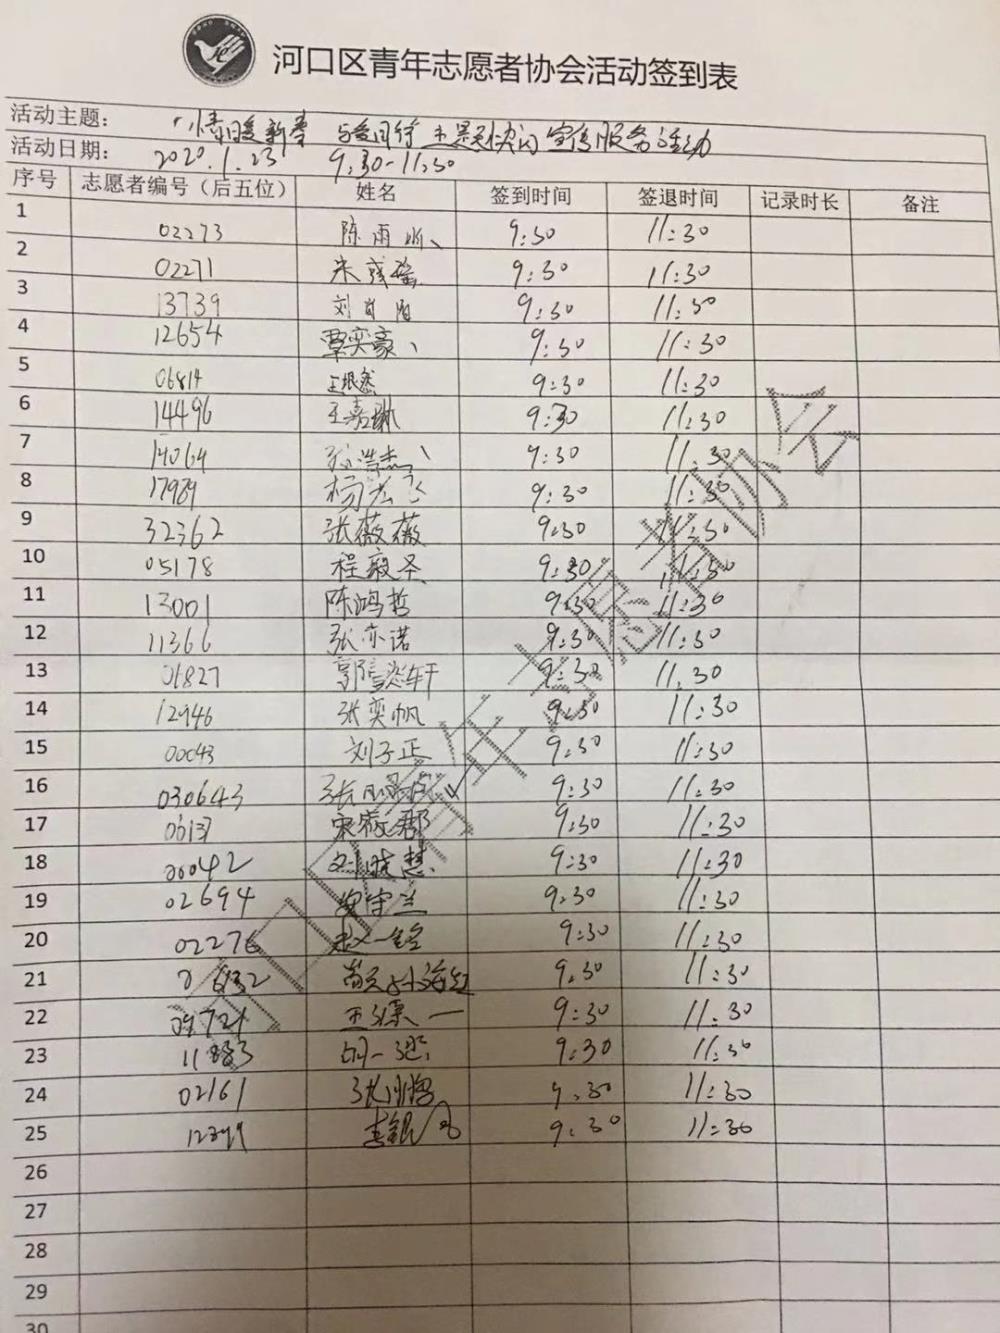 河口区青年志愿者协会活动签到表
活动主题： 情暖新春 与爱同行 主题快闪宣传服务活动
活动日期： 2020.1.23 9:30-11:30
序号 志愿者编号（后五位） 姓名 签到时间 签退时间 记录时长 备注
1 02273 陈雨 9:30 11:30
2 02271 朱 9:30 11:30
3 13739 刘 9:30 11:30
4 12654 覃奕豪 9:30 11:30
5 06814 9:30 11:30
6 14496 王嘉琳 9:30 11:30
7 14064 浩杰 9:30 11:30
8 17989 杨 飞 9:30 11:30
9 32362 张薇薇 9:30 11:30
10 05178 程毅圣 9:30 11:30
11 13001 陈鸿哲 9:30 11:30
12 11366 张亦诺 9:30 11:30
13 06827 郭 轩 9:30 11:30
14 12946 张奕帆 9:30 11:30
15 00043 刘子正 9:30 11:30
16 030643 张 9:30 11:30
17 宋 郡 9:30 11:30
18 00042 刘晓慧 9:30 11:30
19 02694 9:30 11:30
20 02276 赵一铭 9:30 11:30
21 9:30 11:30
22 王 一 9:30 11:30
23 11883 胡一 9:30 11:30
24 02161 张 9:30 11:30
25 李银 9:30 11:30
26
27
28
29
30
河口区青年志愿者协会